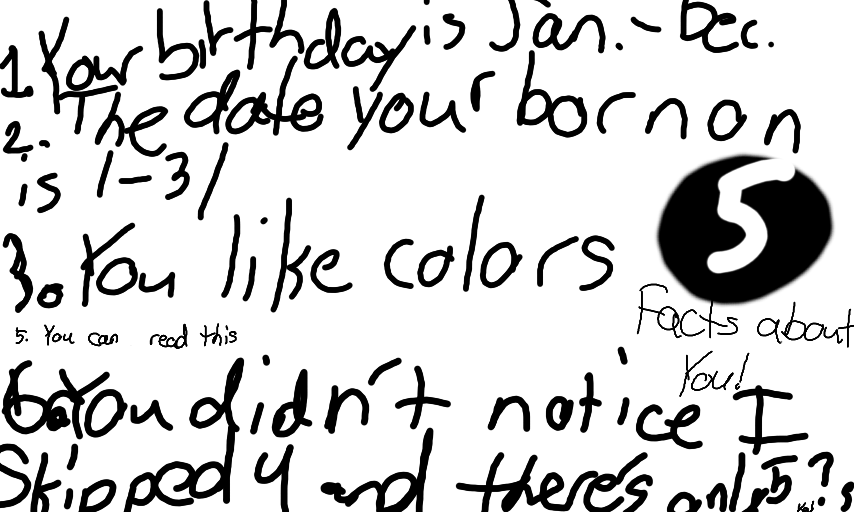 1. Your birthday is Jan. - Dec.
2. The date your born on
is 1-31
3. You like colors
5
Facts about
You!
5. You can read this
6. You didn't notice I
Skipped 4 and there's only 5?s